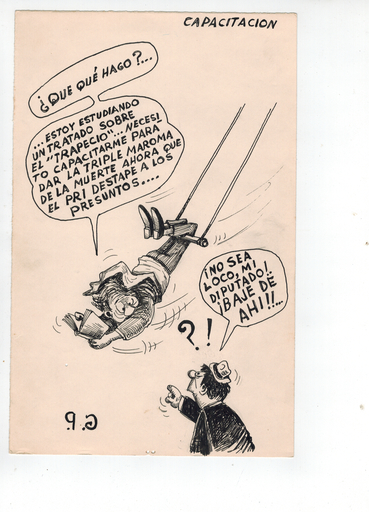 CAPACITACION
¿QUE QUÉ HAGO?...
...ESTOY ESTUDIANDO
UN TRATADO SOBRE
EL "TRAPECIO"... NECESI
TO CAPACITARME PARA
DAR LA TRIPLE MAROMA
DE LA MUERTE AHORA QUE
EL PRI DESTAPE A LOS
PRESUNTOS....
¡NO SEA
LOCO, MI
DIPUTADO!.
¡BAJE DE
AHI!!....
?.!
G.P